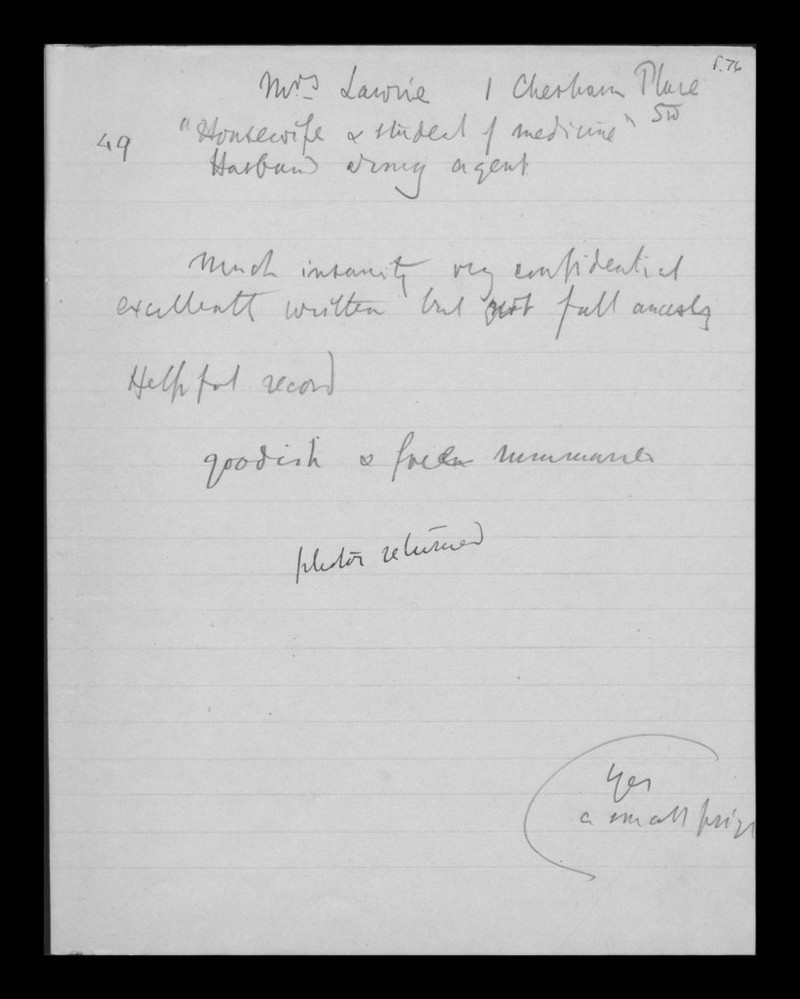 f.76
Mrs Lawrie 1 Chesham Place
SW
49 "Housewife & student of medicine"
Husband army agent
Much insanity very confidential
excellently written but not full ancestry
Helpful record
goodish &
photos returned
Yes
a small prize